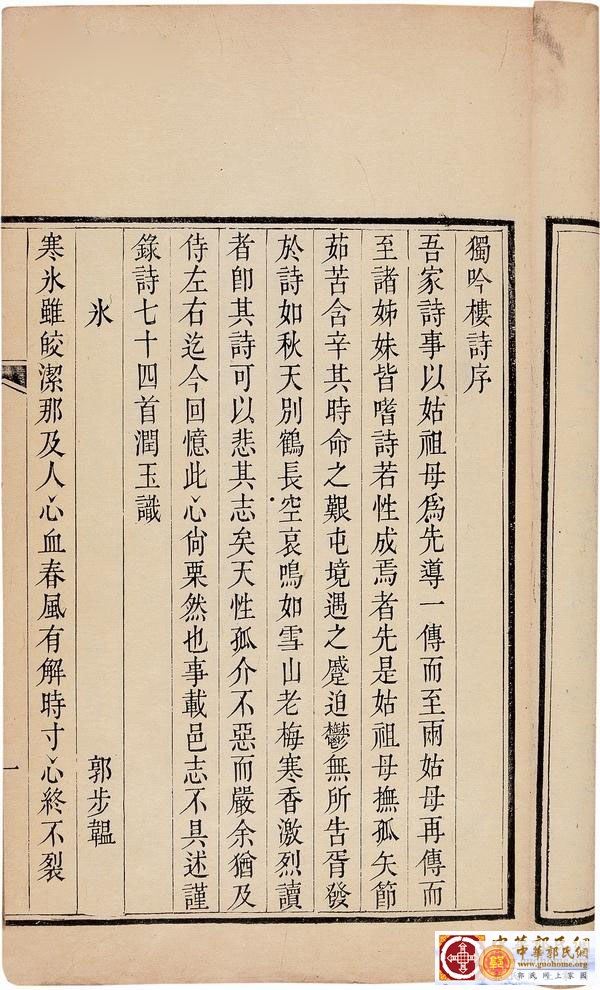 獨吟樓詩序
吾家詩事以姑祖母爲先導一傳而至兩姑母再傳而
至諸姊妹皆嗜詩若性成焉者先是姑祖母撫孤矢節
茹苦含辛其時命之艱屯境遇之蹙迫鬱無所告胥發
於詩如秋天別鶴長空哀鳴如雪山老梅寒香激烈讀
者卽其詩可以悲其志矣天性孤介不惡而嚴余猶及
侍左右迄今回憶此心尙栗然也事載邑志不具述謹
錄詩七十四首潤玉識
氷 郭步韞
寒氷雖皎潔那及人心血春風有解時寸心終不裂
一
中華郭氏網
www.guohome.org
郭氏网上家園